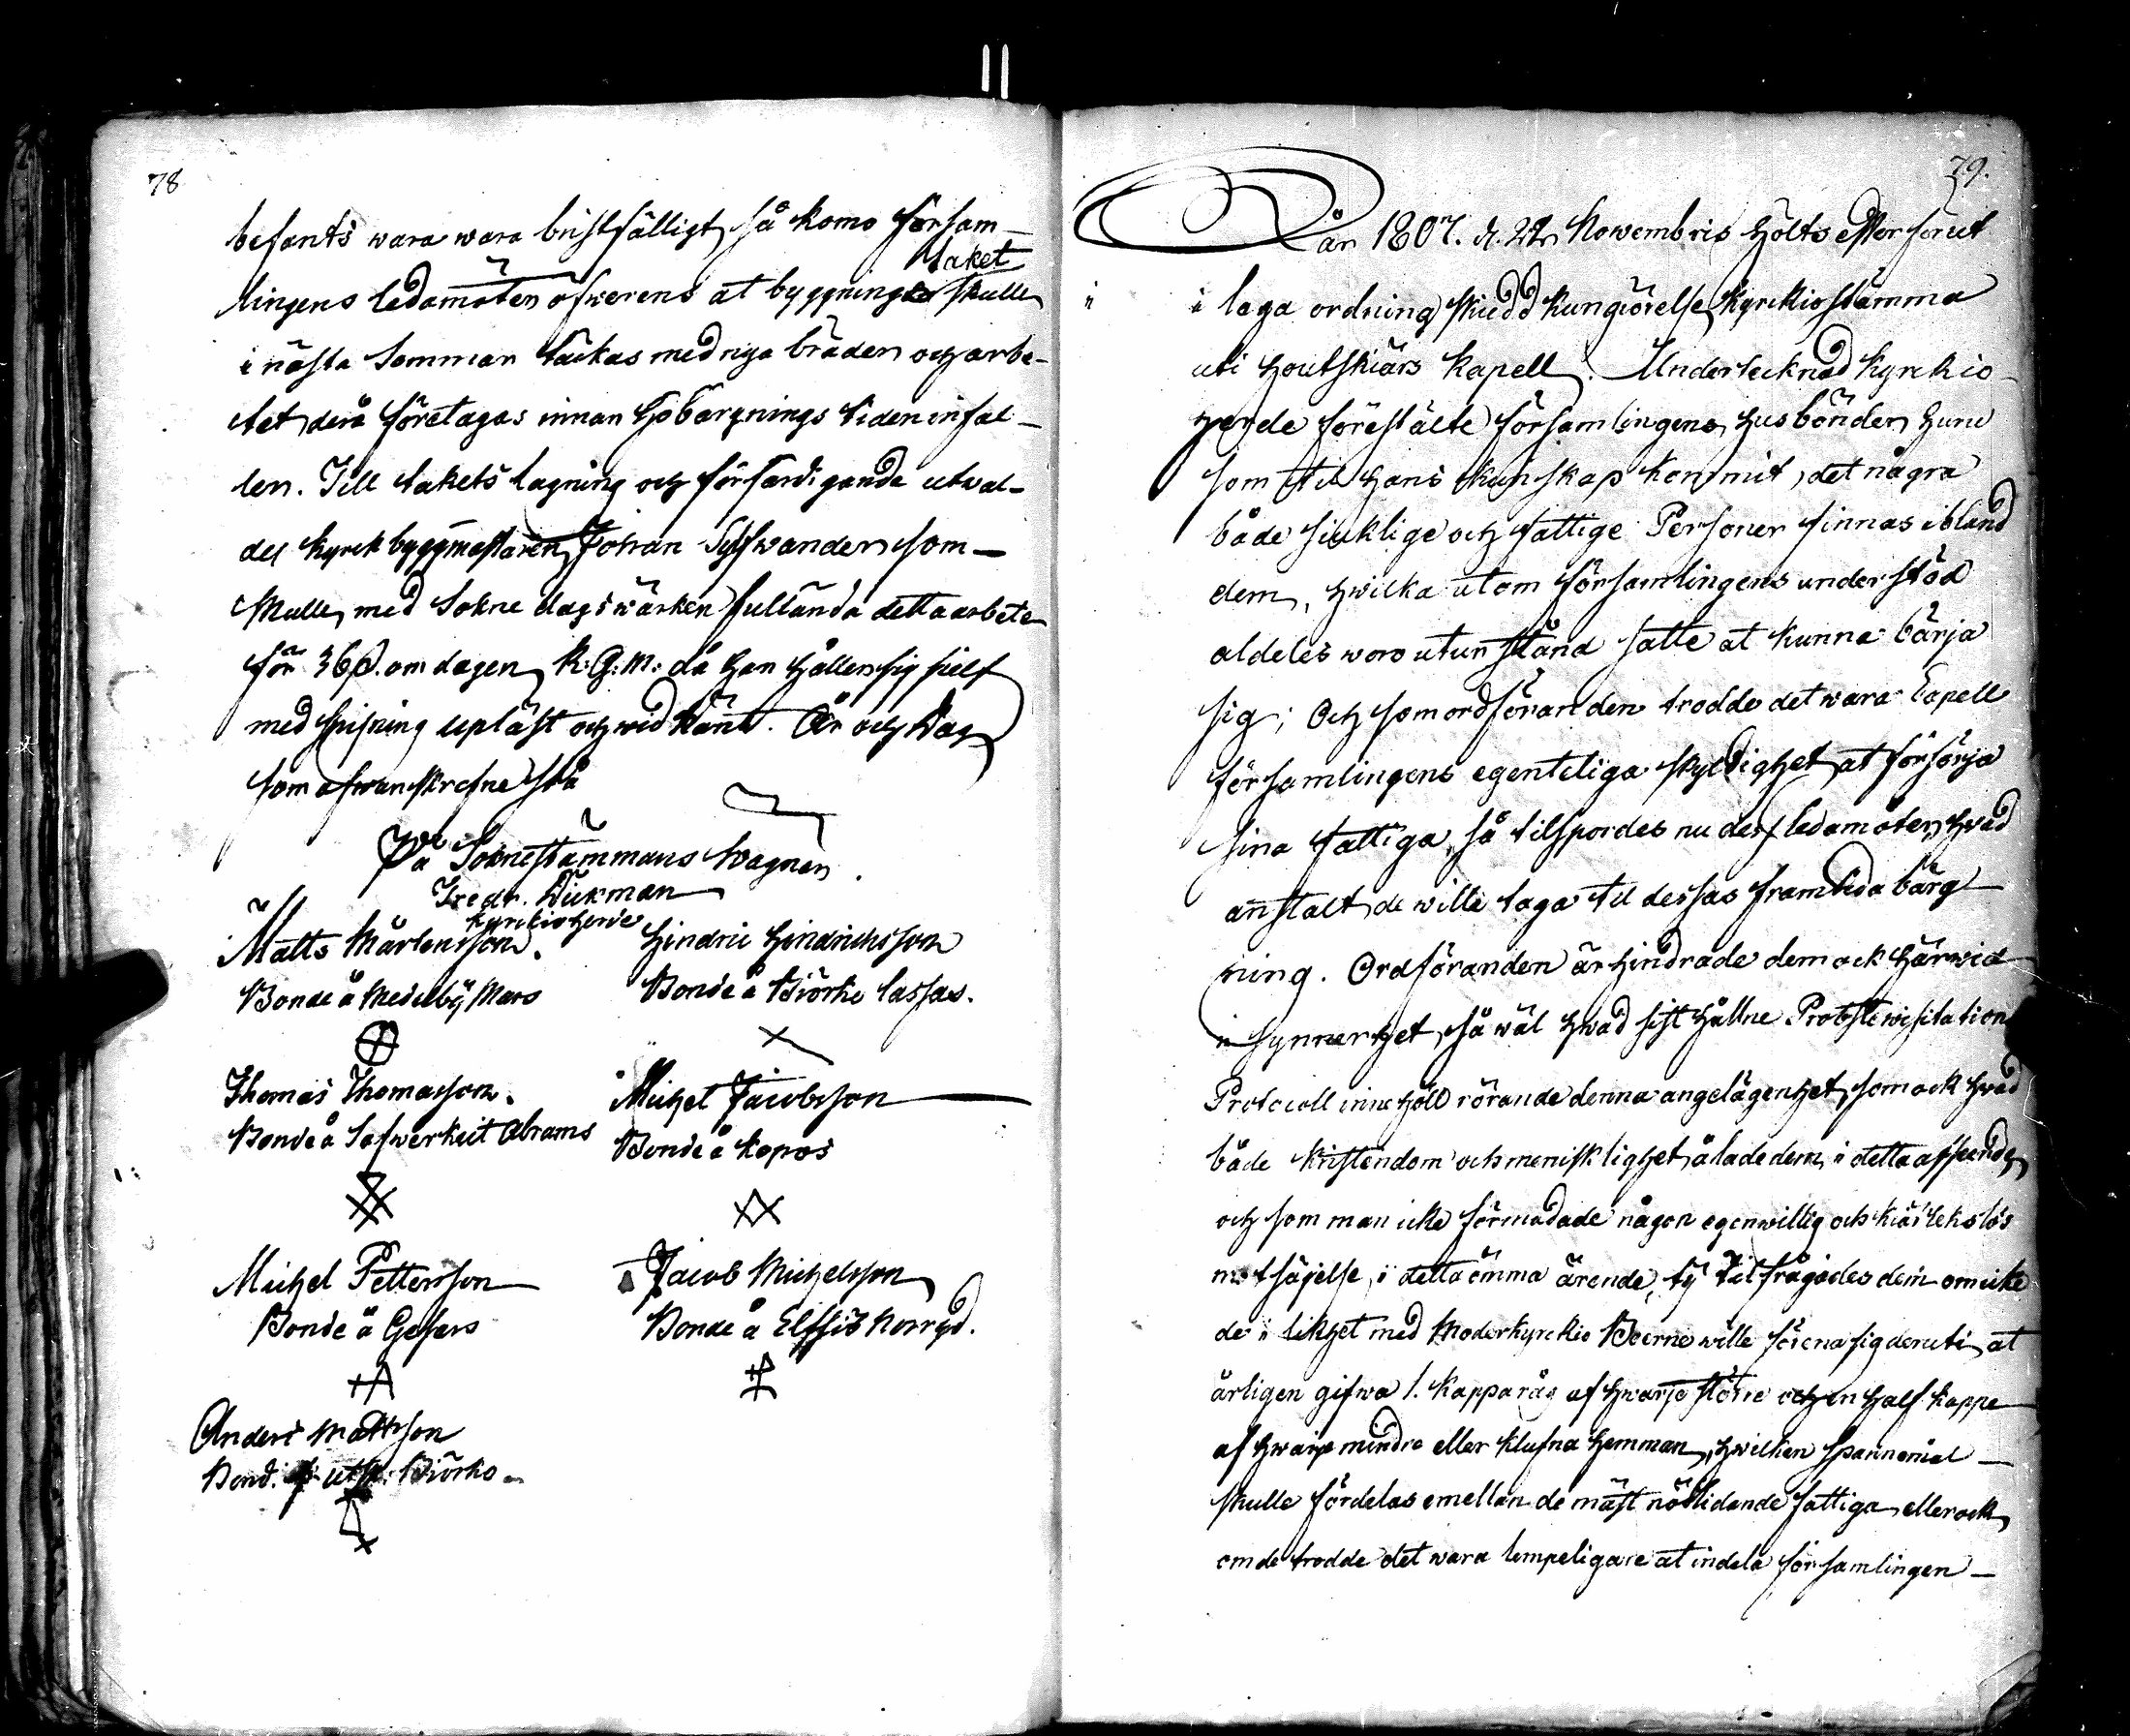 78
befants wara wara bristfälligt, så komo församlingens
ledamöter öfwerens at byggnings taket skulle
i nästa Sommar täckas med nya bräder och arbe-
tet derå företagas innan Höbärgnings tiden infal-
ler. Till takets lagning och förfärdigande utwal-
des Kyrckbyggmästaren Johan Sylfwander som
skulle med Sokne dagswärken fullända detta arbete
för 36 ß. om dagen R:G:M: då han håller sig sielf
med spisning upläst och widkänt. År och Dag
som ofwanskrefne stå
På Sokнestämmans wägnar
Fredr. Dickman
Kyrckioherde
Matts Mårtensson.
Bonde å Mederby Mars
Hindric Hindrichsson
Bonde å Biörkö Lassas.
Thomas Thomasson.
Bonde å Safwerkeit Abrams
Michel Jacobsson
Bonde å Kopos
Michel Pettersson
Bonde å Gesters
Jacob Michelsson
Bonde å Elfsiö Norrgd.
Anders Mattsson
Bond. Biörkö
79.
År 1807. d. 22 Nowembris hölts efter förut
i laga ordning skiedd kungiörelse Kyrckiostämma
uti Houtskiärs Kapell. Undertecknad Kyrckio-
herde förestälte församlingens husbönder huru
som til hans kunskap kommit, det några
både siuklige och fattige Personer finnas ibland
dem, hwilka utom församlingens understöd
aldeles woro utur stånd satte at kunna bärja
sig; Och som ordföranden trodde det wara Capell
församlingens egenteliga skyldighet at försörja
sina fattiga, så tilspordes nu dess ledamöter, hwad
anstalt de wille taga til dessas framtida bärg-
ning. Ordföranden ärhindrade dem ock härwid
i synnerhet, så wäl hwad sist hållne Probstewisitations
Protocoll innehöll rörande denna angelägenhet, som ock hwad
både kristendom och menisklighet ålade dem i detta afseende,
och som man icke förmodade någon egenwillig och kiärlekslös
motsäjelse i detta ömma ärende, ty tilfrågades dem om icke
de i likhet med Moderkyrckio Boerne wille förena sig deruti, at
årligen gifwa 1. Kappa råg af hwarje större och en half kappe
af hwarje mindre eller klufna hemman, hwilken Spannemål
skulle fördelas emellan de mäst nödlidande fattiga, eller ock
om de trodde det wara lempeligare at indela församlingen